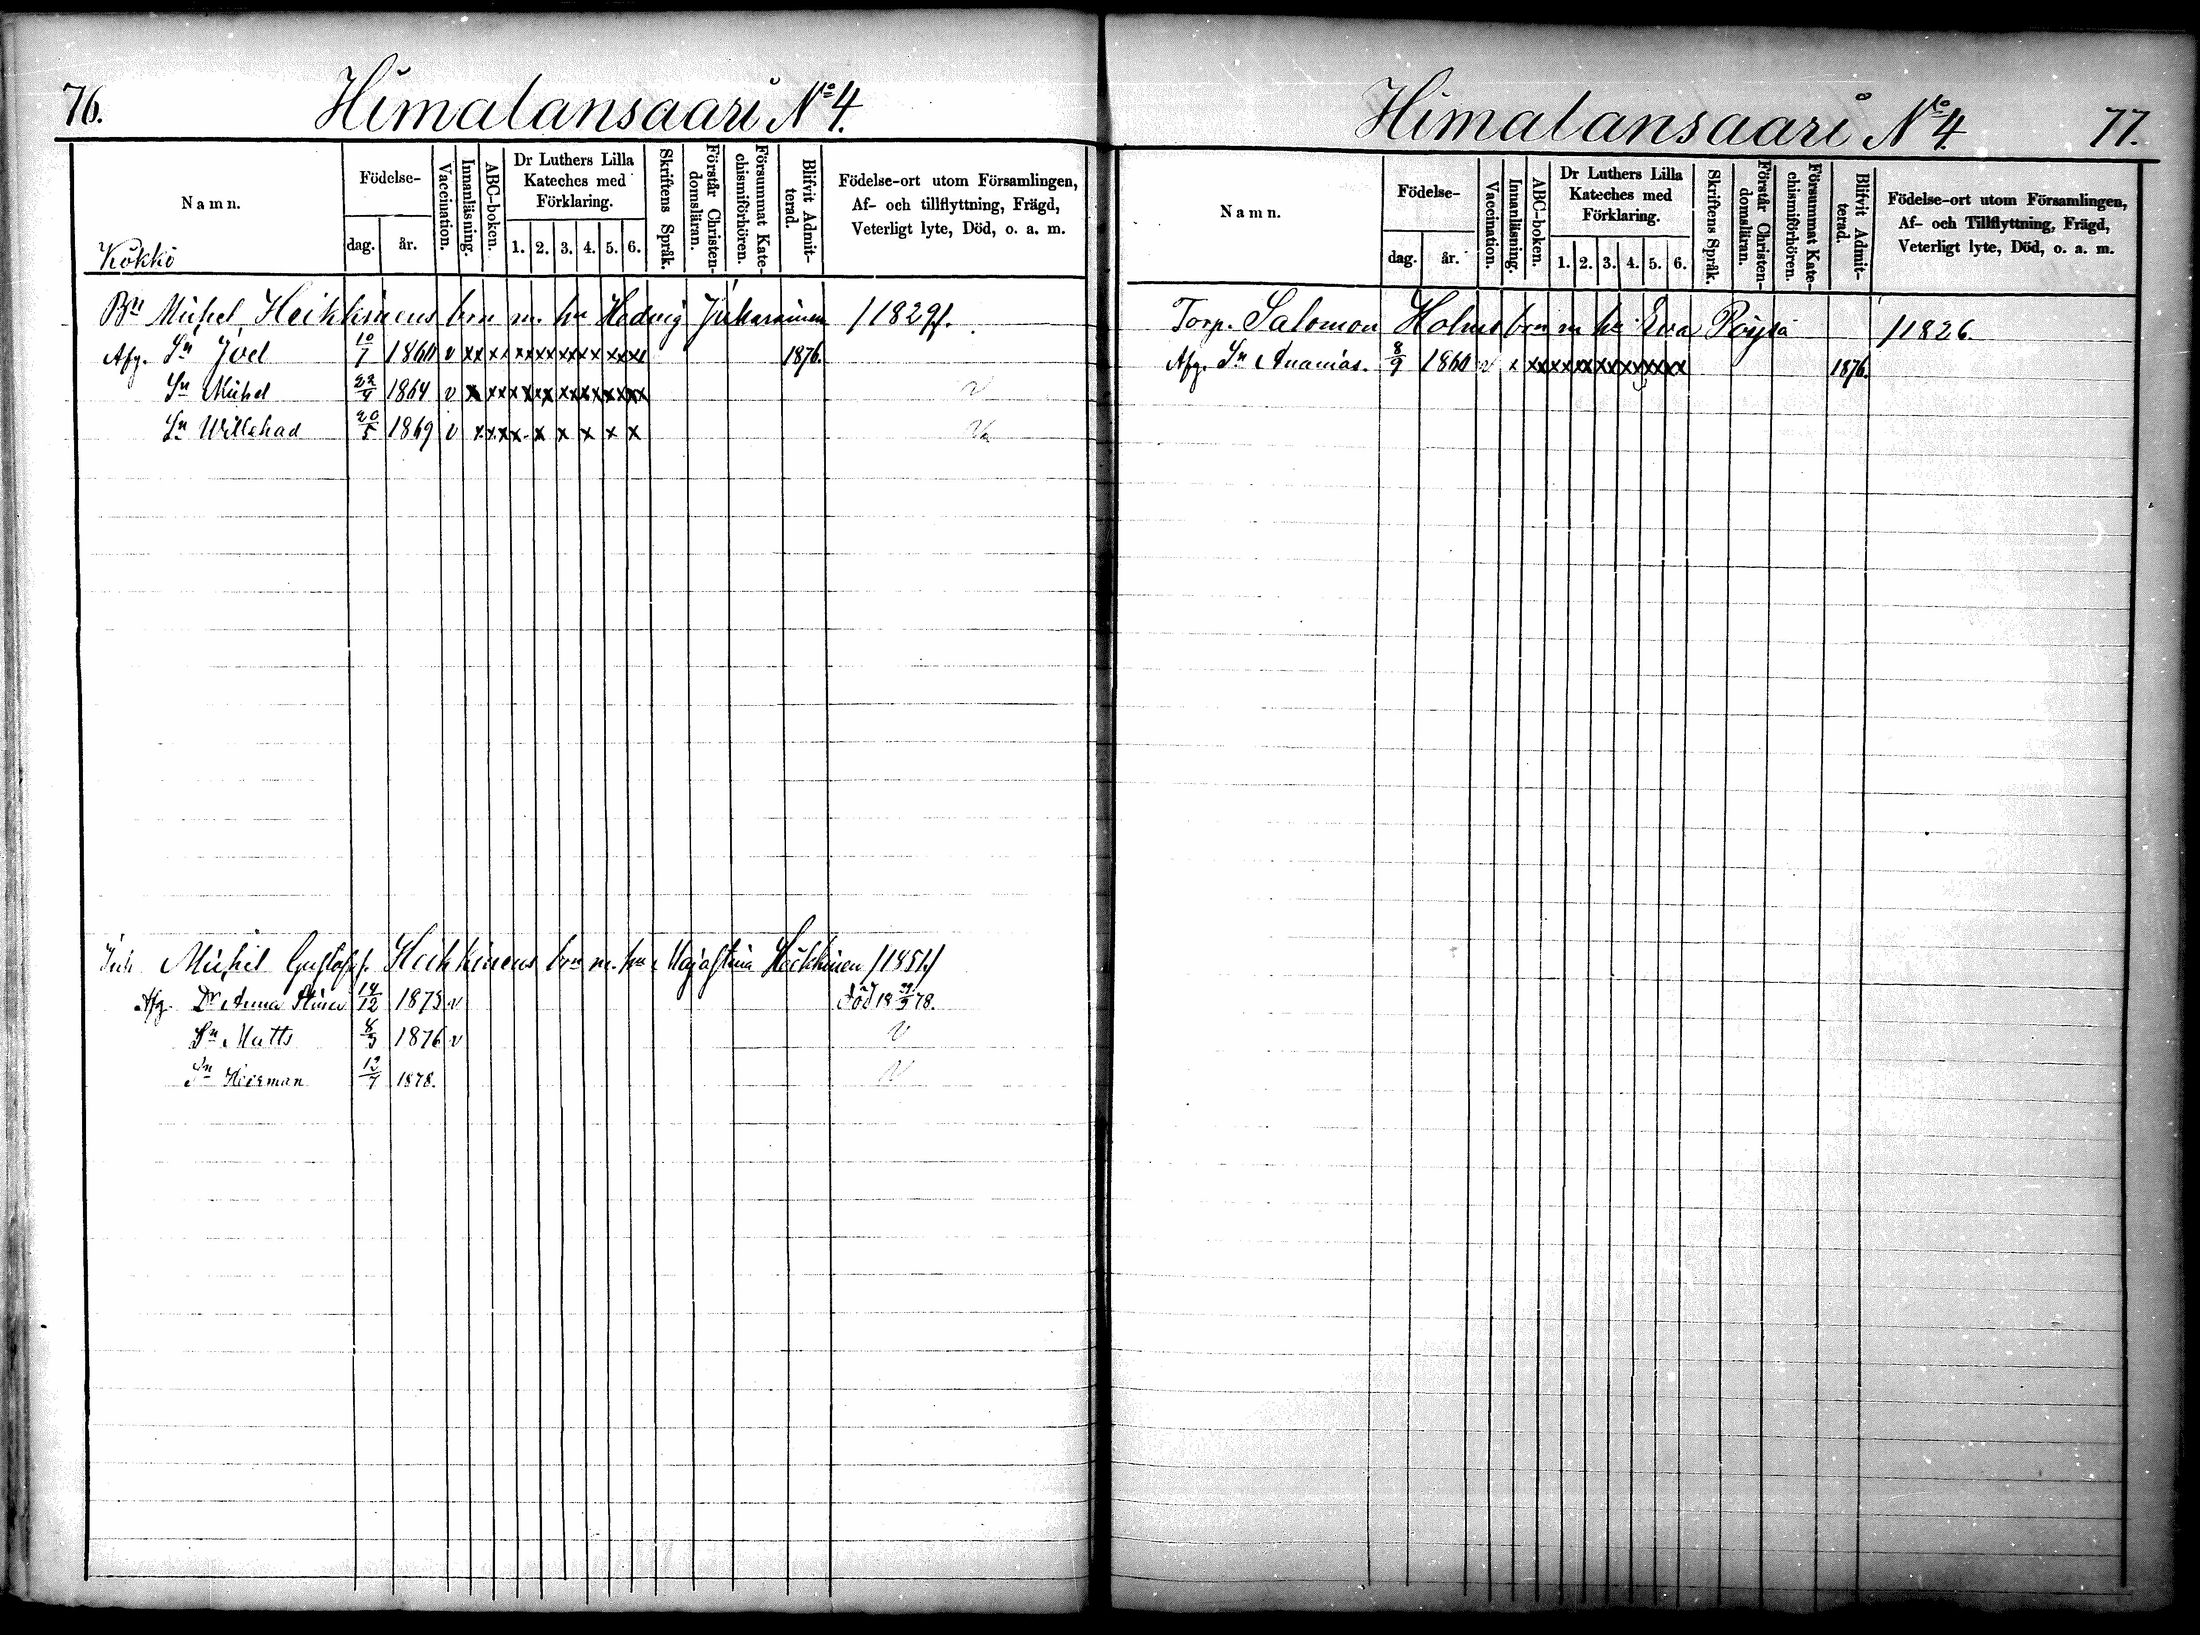 76.
Himalansaari No 4.
Namn.
Födelse-
dag.
år.
Vaccination.
Innanläsning.
ABC-boken.
Dr Luthers Lilla
Kateches med
Förklaring.
1. 2. 3. 4. 5. 6.
Skriftens Språk.
Förstår Christen-
domsläran.
Försummat Kate-
chismiförhören.
Blifvit Admit-
terad.
Födelse-ort utom Församlingen,
Af- och tillflyttning, Frägd,
Veterligt lyte, Död, o. a. m.
Kokko
Bn Michel Heikkinens brn m. hu Hedvig Juharainen /1829/.
Afg. Sn Joel 10/7 1860 v xx xx xxxxxxxx xxxx 1876.
Sn Michel 22/4 1864 v x xx xxxx xxxxxxxx v
Sn Willehad 20/5 1869 v x x x x x x x x x
Michel Gustafs. Heikkinens brn m. hu Maja Stina Heikkinen /1851/
Afg. Dr Anna Stina 14/12 1873 v död 18 /3 78.
Sn Matts 8/3 1876 v v
Sn Herman 12/7 1878. v
Himalansaari No 4.
77.
Namn.
Födelse-
dag.
år.
Vaccination.
Innanläsning.
ABC-boken.
Dr Luthers Lilla
Kateches med
Förklaring.
1. 2. 3. 4. 5. 6.
Skriftens Språk.
Förstår Christen-
domsläran.
Försummat Kate-
chismiförhören.
Blifvit Admit-
terad.
Födelse-ort utom Församlingen,
Af- och Tillflyttning, Frägd,
Veterligt lyte, Död, o. a. m.
Torp. Salomon Holms brn m hu Eva Pöysä /1826.
Afg. Sn Ananias. 8/9 1860 v x xxxxxxxxxxxxxx 1876.